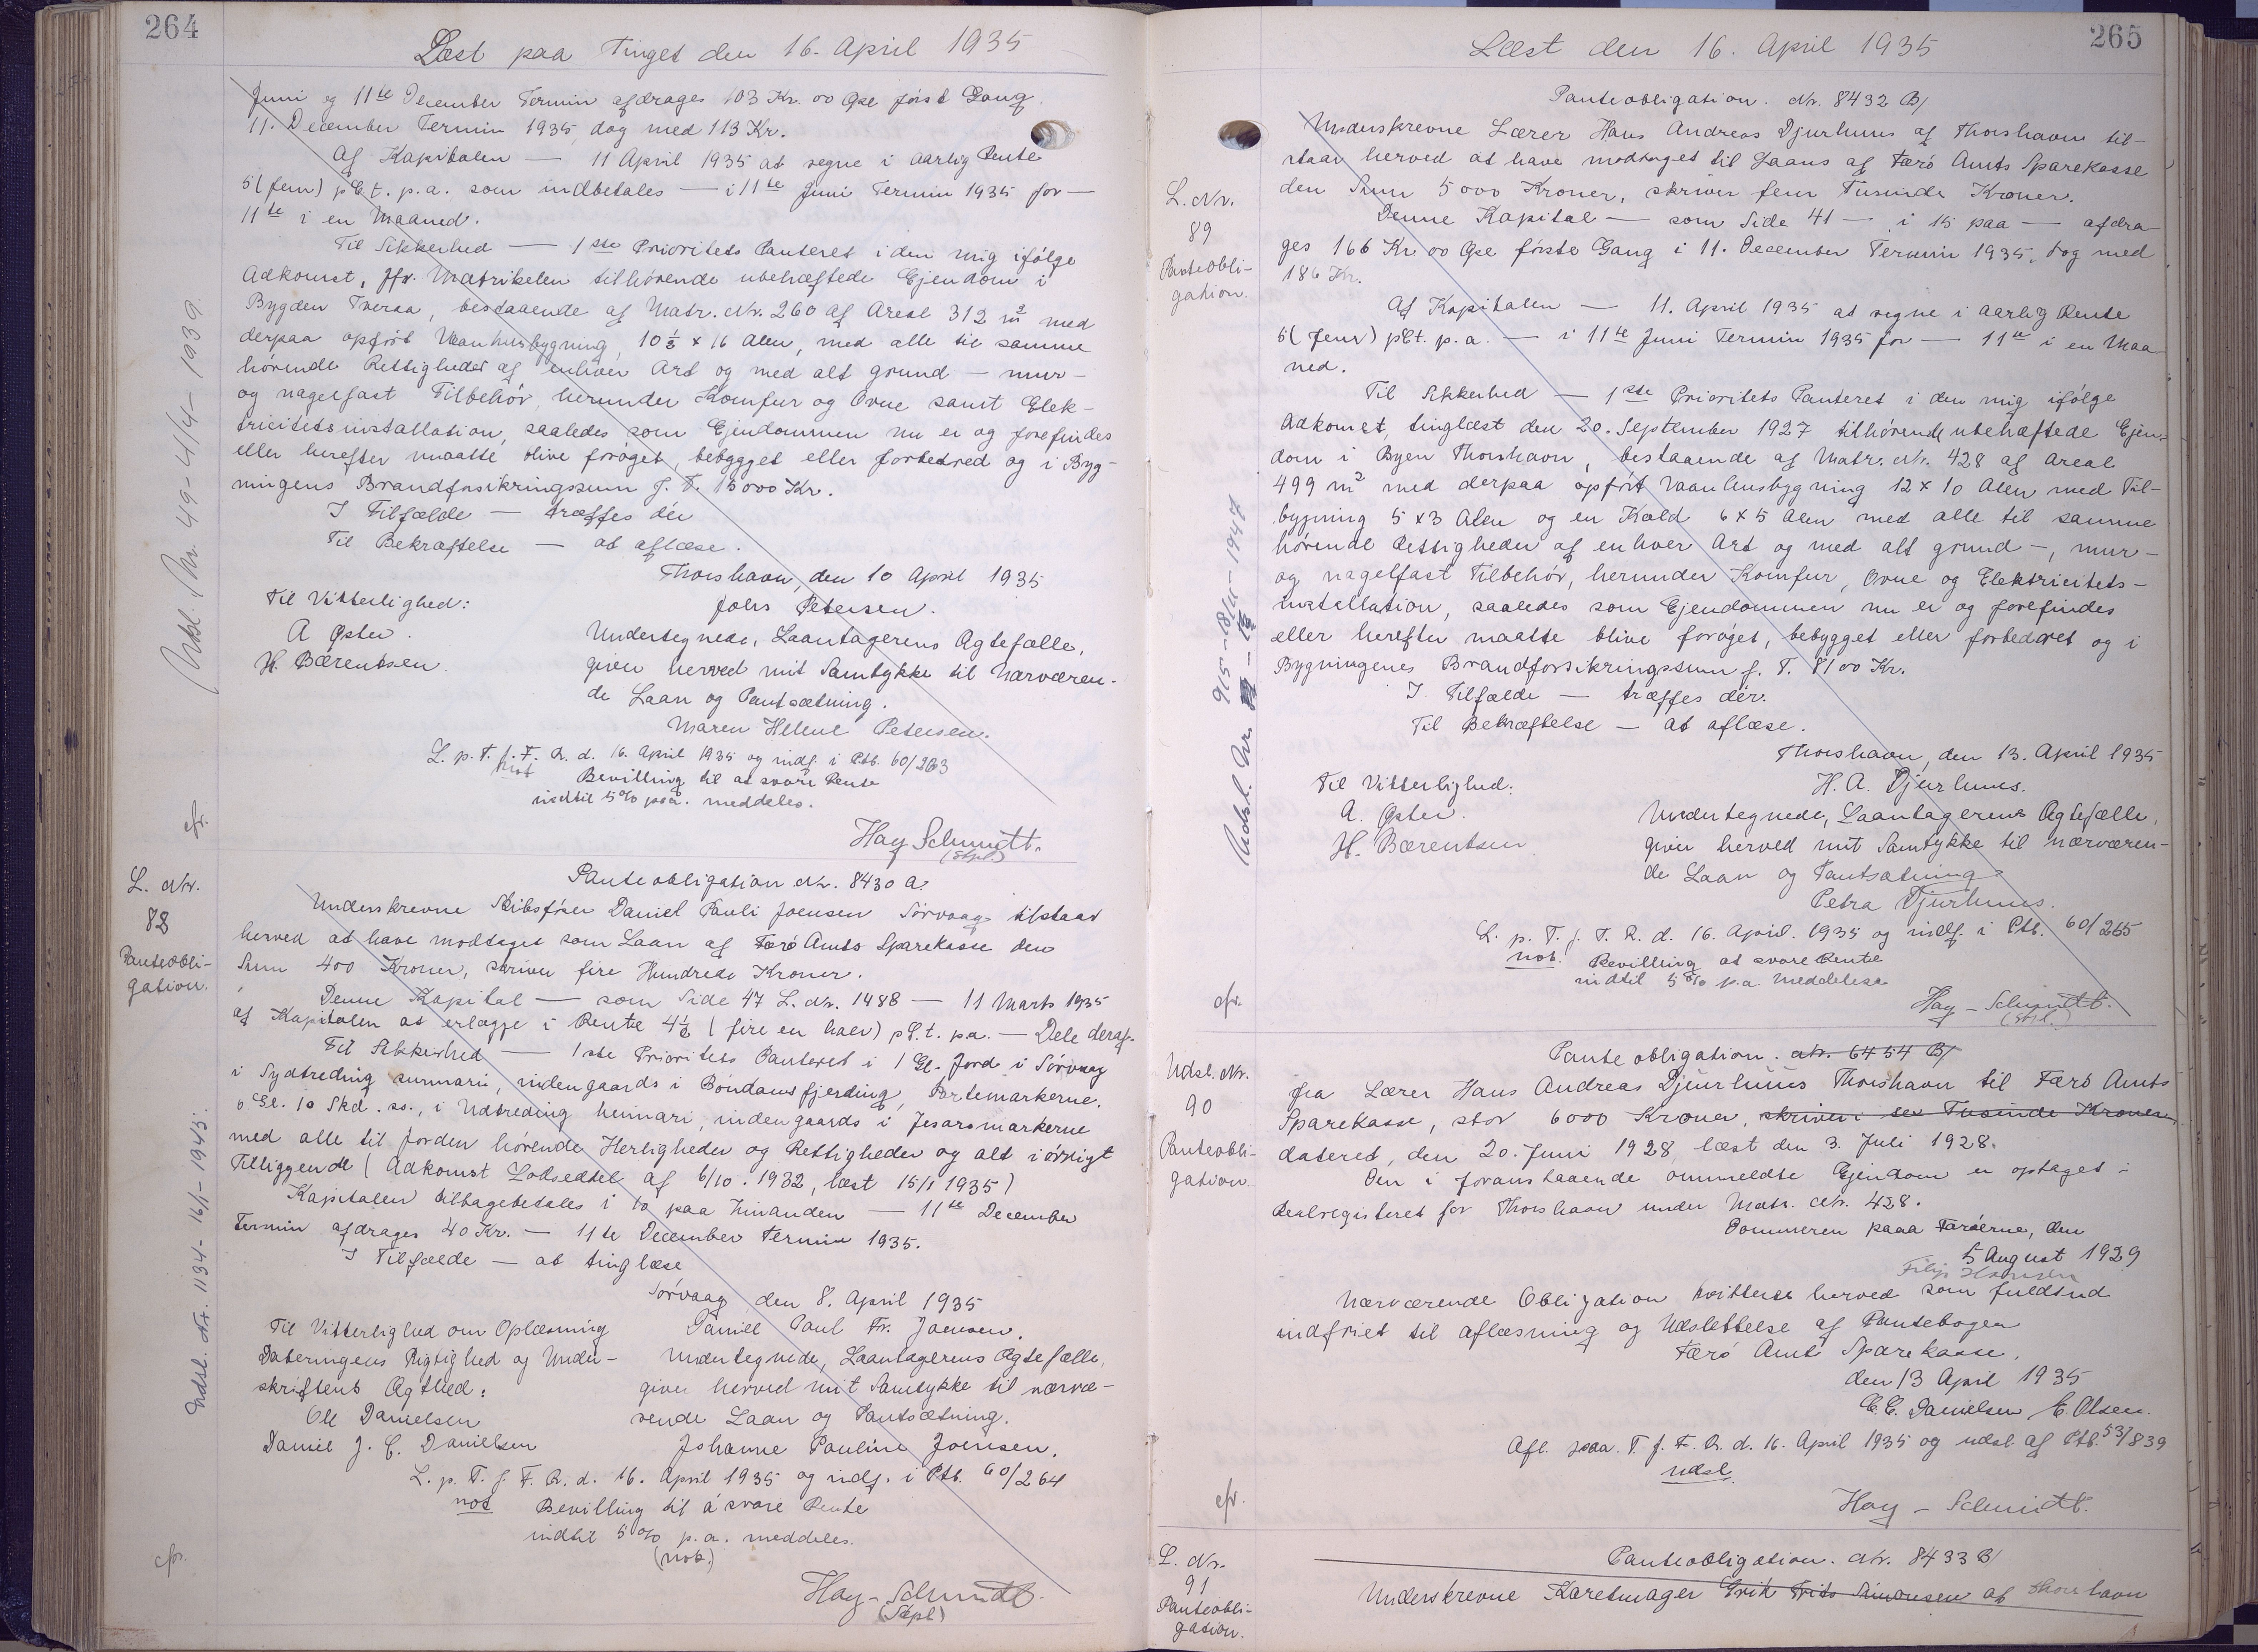 264
Læst paa Tinget den 16. April 1935
Juni og 11te December Termin afdrages 103 Kr. 00 Øre først Gang
11. December Termin 1935, dog med 113 Kr.
Af Kapitalen — 11 April 1935 at regne i aarlig Rente
5 (fem) pCt. p.a. som indbetales — i 11te Juni Termin 1935 for —
11te i en Maaned.
Til Sikkerhed — 1ste Prioritets Panteret i den mig ifølge
Adkomst, jfr. Matrikelen tilhørende ubehæftede Ejendom i
Bygden Tveraa, bestaaende af Matr. Nr. 260 af Areal 312 m2 med
derpaa opført Vaanhusbygning, 10 ½ × 16 Alen, med alle til samme
hørende Rettigheder af enhver Art og med alt grund — mur —
og nagelfast Tilbehør, herunder Komfur og Ovne samt Elek-
tricitetsinstallation, saaledes som Ejendommen nu er og forefindes
eller herefter maatte blive forøget, bebygget eller forbedred og i Byg-
ningens Brandforsikringssum f. T. 15000 Kr.
I Tilfælde — træffes dér
Til Bekræftelse — at aflæse.
Thorshavn, den 10 April 1935
Til Vitterlighed:
Johs Petersen.
A Øster.
H. Bærentsen.
Undertegnede, Laantagerens Ægtefælle,
giver herved mit Samtykke til nærværen-
de Laan og Pantsætning.
Maren Helene Petersen.
L. p. T. f. F. R. d. 16. April 1935 og indf. i Ptb. 60/263
not Bevilling til at svare Rente
indtil 5% p.a. meddeles.
Hay Schmidt.
(Stpl)
Udsl. Nr. 49 - 4/4 - 1939.
cfr.
L. Nr.
88
Panteobli-
gation.
Panteobligation Nr. 8430 A.
Underskrevne Skibsfører Daniel Pauli Joensen Sørvaag tilstaar
herved at have modtaget som Laan af Færø Amts Sparekasse den
Sum 400 Kroner, skriver fire Hundrede Kroner.
Denne Kapital — som Side 47 L. Nr. 1488 — 11 Marts 1935
af Kapitalen at erlægge i Rente 4½ (fire en halv) pC.t. p.a. — Dele deraf.
Til Sikkerhed — 1ste Prioritets Panteret i 1 Gl. Jord i Sørvaag
i Sydtreding sunnari, indengaards i Bóndansfjerding, Partemarkerne.
6 Gl. 10 Skd. ss., i Udtreding heimari, indengaards i Jesarsmarkerne
med alle til Jorden hørende Herligheder og Rettigheder og alt iøvrigt
Tilliggende (Adkomst Lodsedtel af 6/10. 1932, læst 15/1 1935)
Kapitalen tilbagebetales i 10 paa hinanden — 11te December
Termin afdrages 40 Kr. — 11te December Termin 1935.
I Tilfælde — at tinglæse
Sørvaag, den 8. April 1935
Til Vitterlighed om Oplæsning
Dateringens Rigtighed og Under-
skriftens Ægthed:
Ole Danielsen
Daniel J. C. Danielsen
Daniel Paul Fr. Joensen.
Undertegnede, Laantagerens Ægtefælle,
giver herved mit Samtykke til nærvæ-
rende Laan og Pantsætning.
Johanne Pauline Joensen.
L. p. T. f. F. R. d. 16. April 1935 og indf. i Ptb. 60/264
not Bevilling til á svare Rente
indtil 5% p.a. meddeles.
(not.)
Hay - Schmidt.
(Stpl)
Udsl. Nr. 1134 - 16/1 - 1943.
cfr.
265
Læst den 16. April 1935
L. Nr.
89
Panteobli-
gation.
Panteobligation. Nr. 8432 B/
Underskrevne Lærer Hans Andreas Djurhuus af Thorshavn til-
staar herved at have modtaget til Laans af Færø Amts Sparekasse
den Sum 5000 Kroner, skriver fem Tusinde Kroner.
Denne Kapital — som Side 41 — i 15 paa — afdra-
ges 166 Kr 00 Øre første Gang i 11. December Termin 1935, dog med
186 Kr.
Af Kapitalen — 11. April 1935 at regne i aarlig Rente
5 (fem) pCt. p.a. — i 11te Juni Termin 1935 for — 11te i en Maa-
ned.
Til Sikkerhed — 1ste Prioritets Panteret i den mig ifølge
Adkomst, tinglæst den 20. September 1927 tilhørende ubehæftede Ejen-
dom i Byen Thorshavn, bestaaende af Matr. Nr. 428 af Areal
499 m2 med derpaa opført Vaanhusbygning 12 × 10 Alen med Til-
bygning 5 × 3 Alen og en Kæld 6 × 5 Alen med alle til samme
hørende Rettigheder af enhver Art og med alt grund —, mur —
og nagelfast Tilbehør, herunder Komfur, Ovne og Elektricitets-
installation, saaledes som Ejendommen nu er og forefindes
eller herefter maatte blive forøget, bebygget eller forbedret og i
Bygningenes Brandforsikringssum f. T. 8100 Kr.
I Tilfælde — træffes dér.
Til Bekræftelse — at aflæse.
Thorshavn, den 13. April 1935
Til Vitterlighed:
H. A. Djurhuus.
A. Øster.
H. Bærentsen
Undertegnede, Laantagerens Ægtefælle,
giver herved mit Samtykke til nærværen-
de Laan og Pantsætning
Petra Djurhuus.
L. p. T. f. F. R. d. 16. April. 1935 og indf. i Ptb. 60/265
not. Bevilling at svare Rente
indtil 5% p.a. meddelese
Hay - Schmidt.
(Stpl.)
cfr.
Udsl. Nr.
90
Panteobli-
gation.
Panteobligation. Nr. 6454 B/
fra Lærer Hans Andreas Djurhuus Thorshavn til Færø Amts
Sparekasse, stor 6000 Kroner, skriver: sex Tusinde Kroner
dateret, den 20. Juni 1928, læst den 3. Juli 1928.
Den i foranstaaende ommeldte Ejendom er optaget i
Realregisteret for Thorshavn under Matr. Nr. 428.
Dommeren paaa Færøerne, den
5 August 1929
Nærværende Obligation kvitteres herved som fuldtud
indfriet til aflæsning og Udslettelse af Pantebogen
Færø Amts Sparekasse.
den 13 April 1935
C. C. Danielsen E. Olsen.
Afl. paa. T. f. F. R. d. 16. April 1935 og udsl. af Ptb. 53/839
udsl.
Hay - Schmidt.
cfr.
L. Nr.
91
Panteobli-
gation.
Panteobligation. Nr. 8433 B/
Underskrevne Karetmager Erik Frits Simonsen af Thorshavn